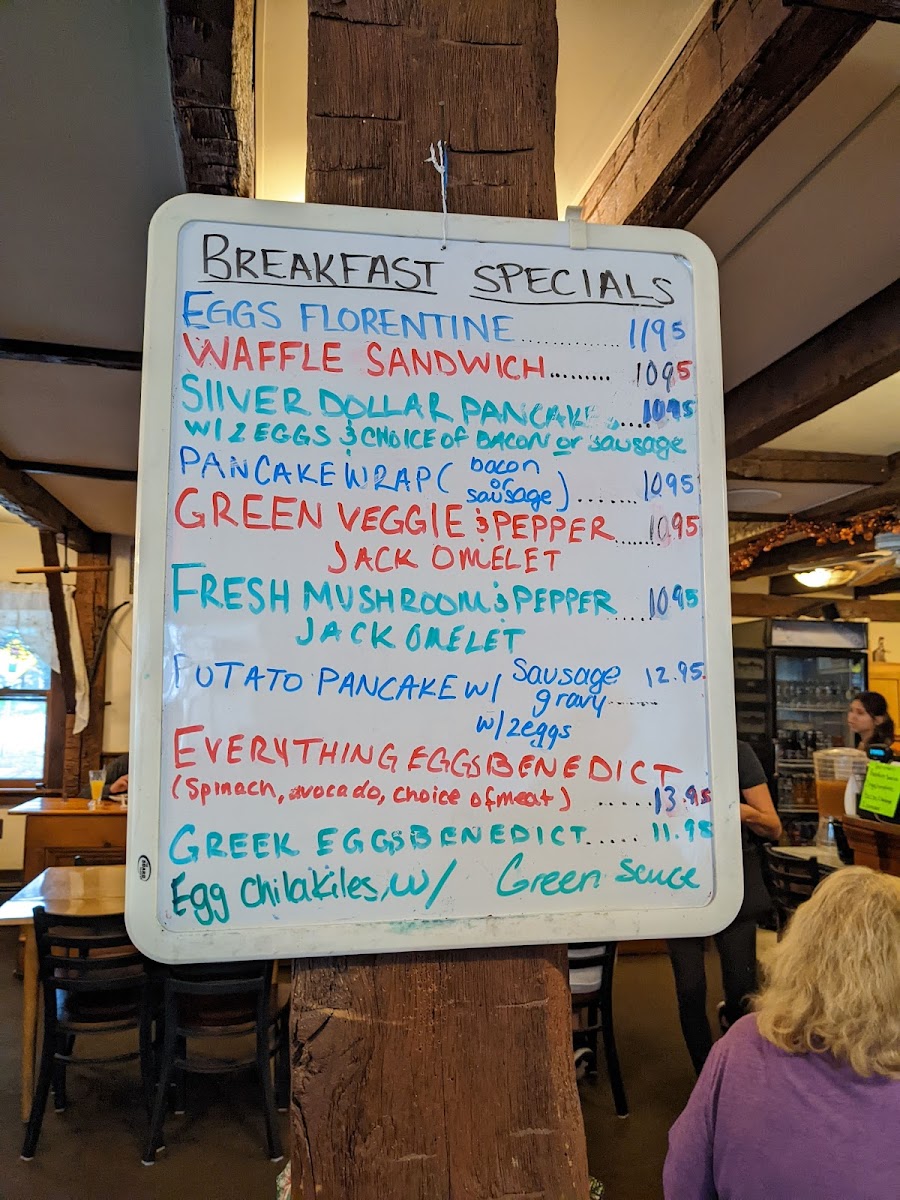 BREAKFAST SPECIALS
EGGS FLORENTINE.............. 1195
WAFFLE SANDWICH......... 1095
SIlVER DOLLAR PANCAKES..... 1095
W/ 2 EGGS & CHOICE OF BACON or sausage
PANCAKE WRAP (bacon or sausage)....... 1095
GREEN VEGGIE & PEPPER...... 1095
JACK OMELET
FRESH MUSHROOM & PEPPER...... 1095
JACK OMELET
POTATO PANCAKE W/ Sausage gravy...... 12.95
w/2eggs
EVERYTHING EGGS BENEDICT
(Spinach, avocado, choice of meat) ...... 13.95
GREEK EGGS BENEDICT..... 11.95
Egg Chilakiles, w/ Green Sauce